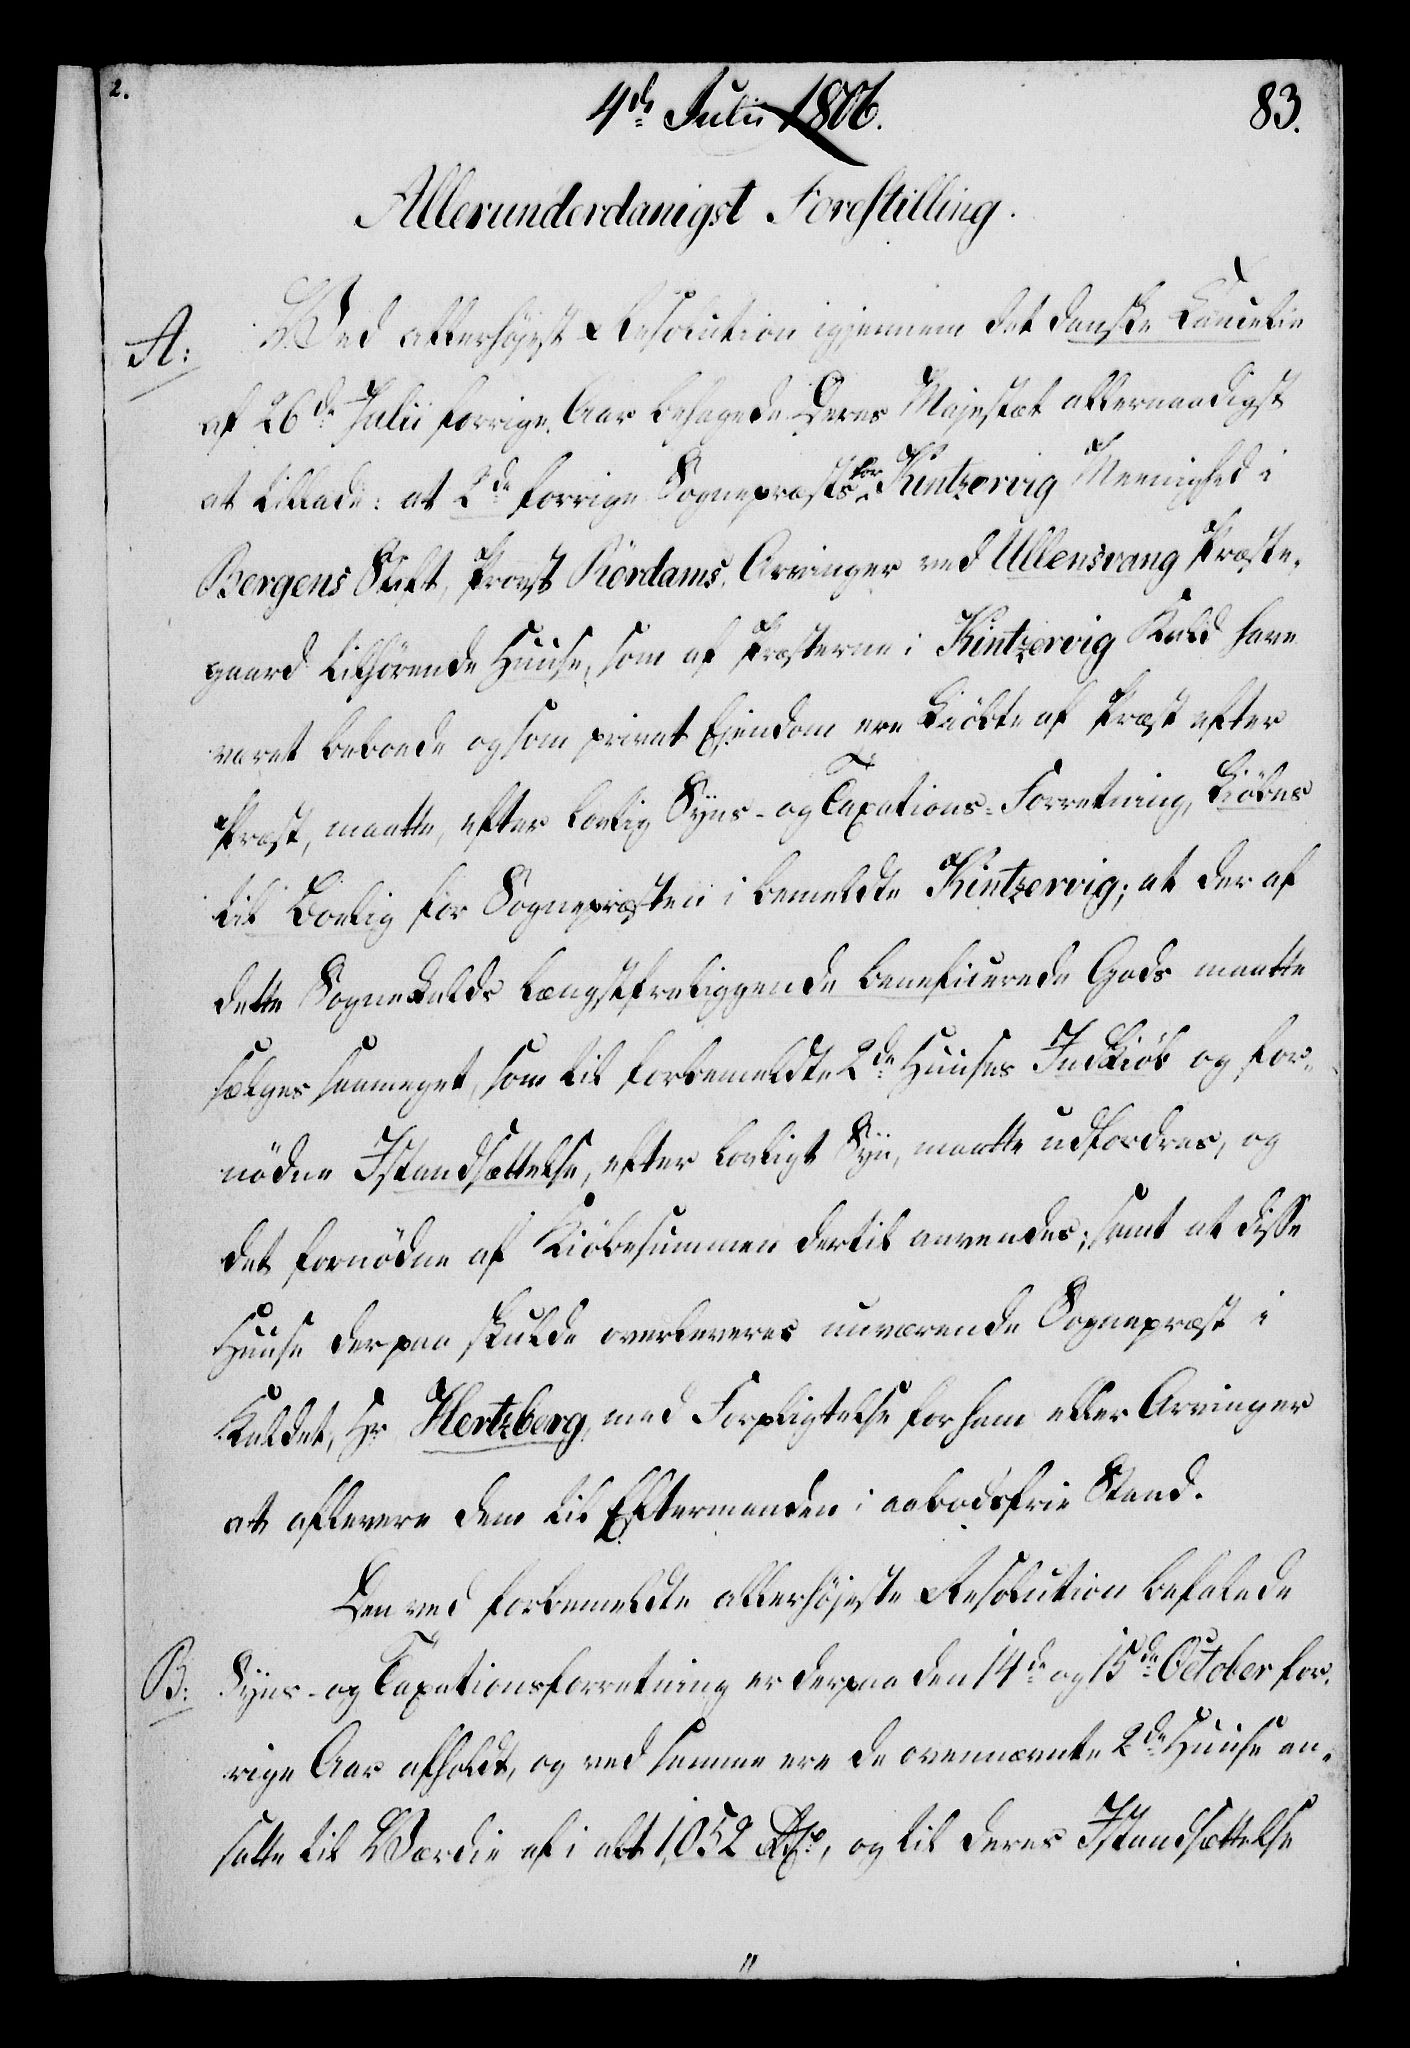 2.
4de Julii 1806.
83.
Allerunderdanigst Forestilling.
A:
Ved allerhøjest Resolution igjennem det danske Cancelie
af 26de Julii forrige Aar behagede Deres Majestæt allernaadigst
at tillade: at 2de forrige Sognepræsts for Kintzervig Meenighed i
Bergens Stift, Provst Rördams, Arvinger ved Ullensvang Præste-
gaard tilhørende Huuse, som af Præsterne i Kintzervig Kald have
været beboede og som privat Ejendom ere kiöbte af Præst efter
Præst, maatte, efter lovlig Syns- og Taxations-Forretning, kiöbes
til Boelig for Sognepræsten i bemeldte Kintzervig; at der af
dette Sognekalds længstfraliggende beneficerede Gods maatte
sælges saameget, som til forbemeldte 2de Huuses Indkiöb og for-
nödne Istandsættelse, efter lovligt Syn, maatte udfordres, og
det fornödne af Kiöbesummen dertil anvendes; samt at disse
Huuse derpaa skulde overleveres nuværende Sognepræst i
Kaldet, Hr Hertzberg, med Forpligtelse for ham eller Arvinger
at aflevere dem til Eftermanden i aabodsfrie Stand.
Den ved forbemeldte allerhøjeste Resolution befalede
B:
Syns- og Taxationsforretning er derpaa den 14de og 15de October for-
rige Aar afholdt, og ved samme ere de ovennævnte 2de Huuse an-
satte til Værdie af i alt 1,052 Rdr, og til deres Istandsættelse
"